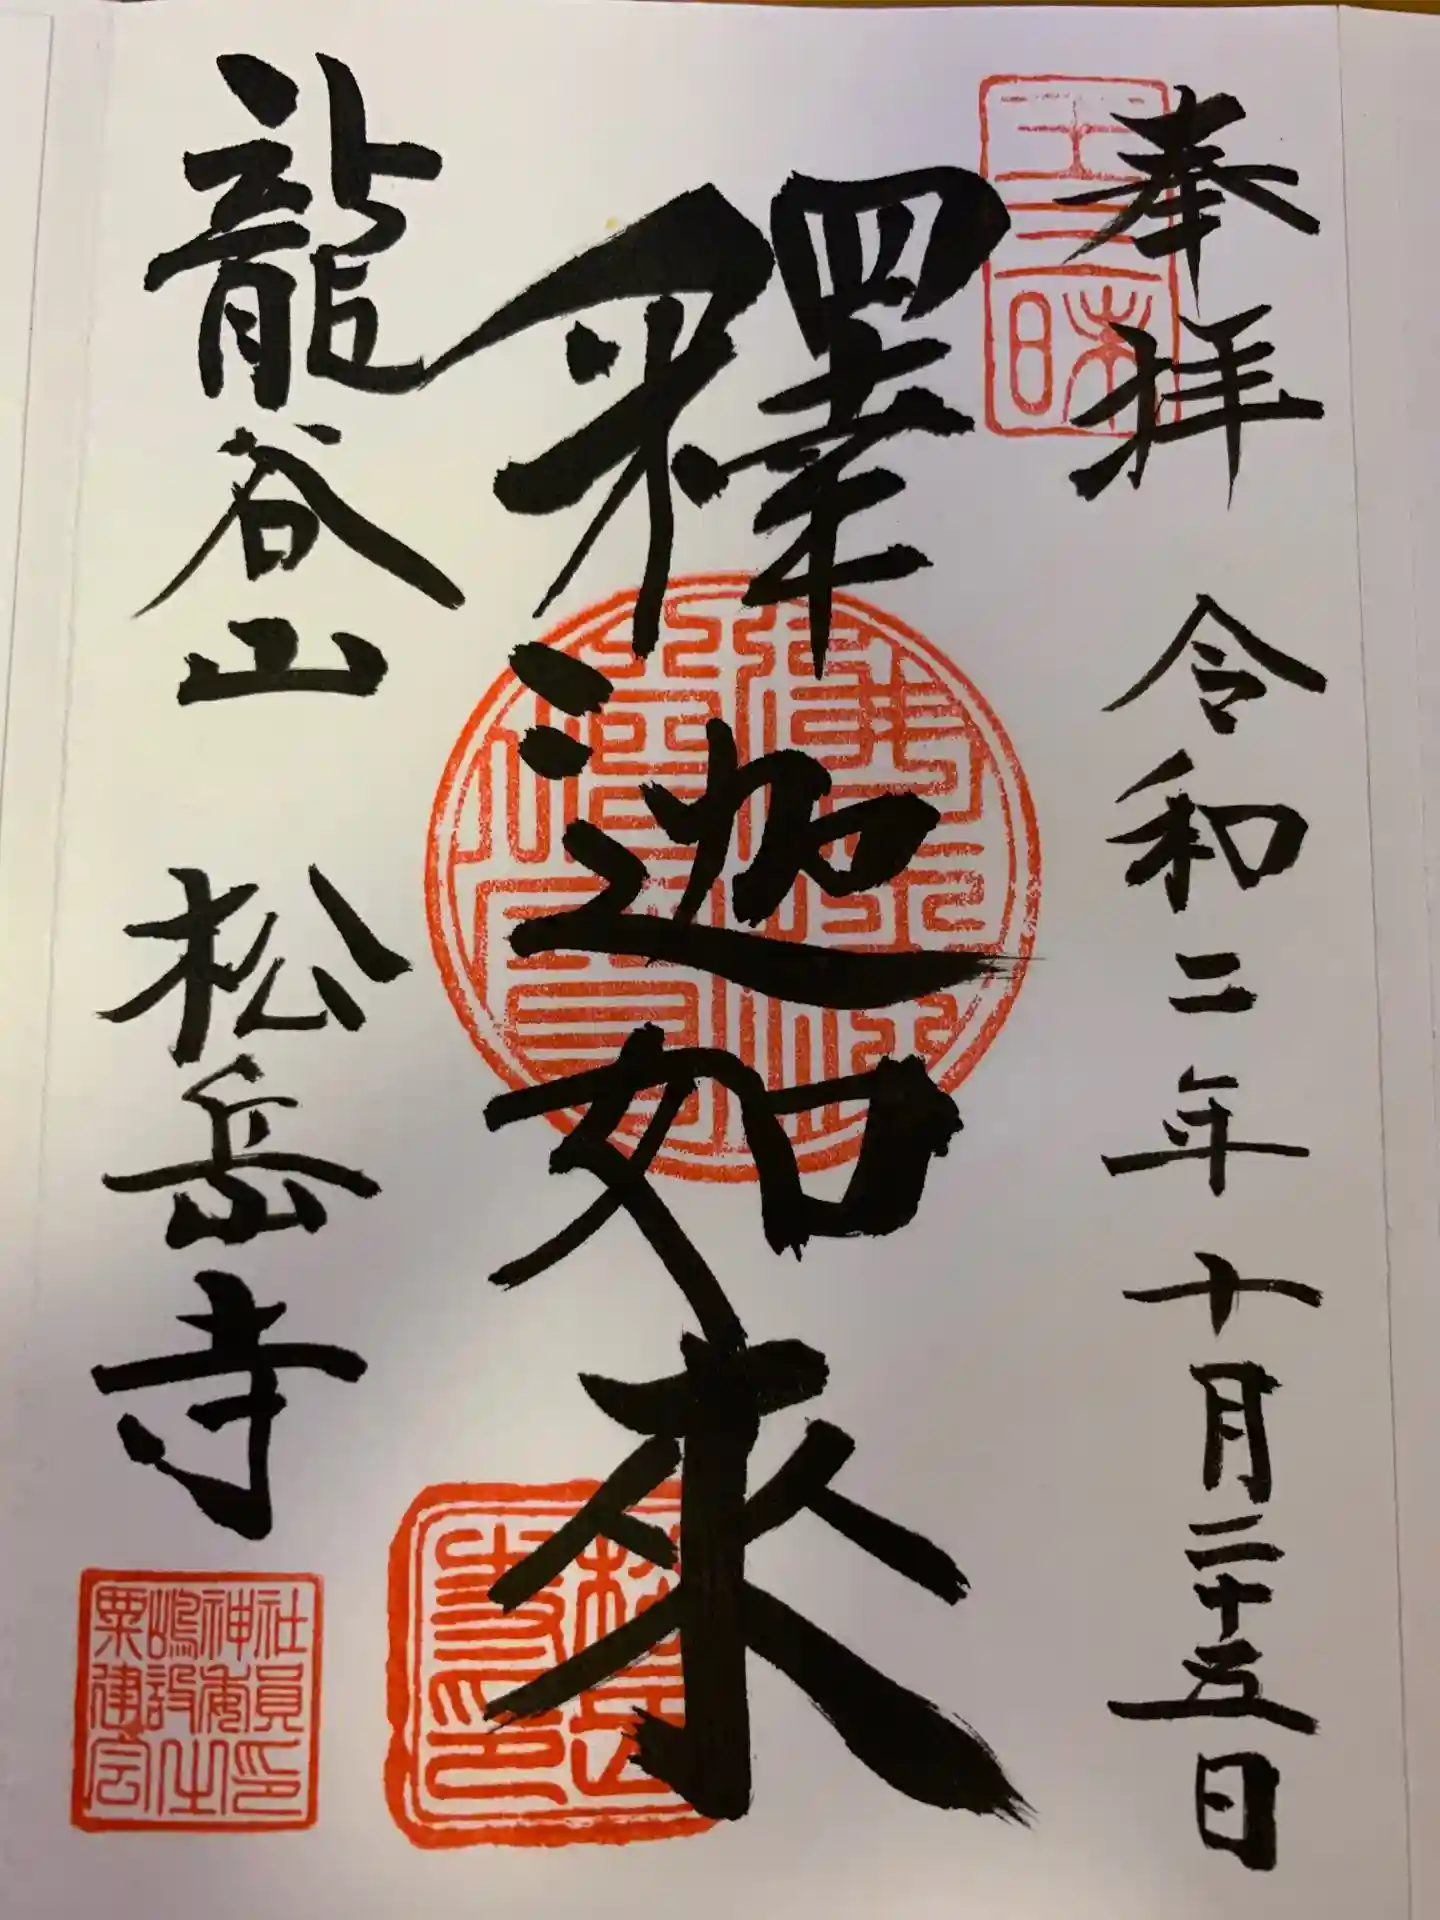 奉拝 令和二年十月二十五日
王三昧
釋迦如來
龍谷山 松岳寺
松岳寺印